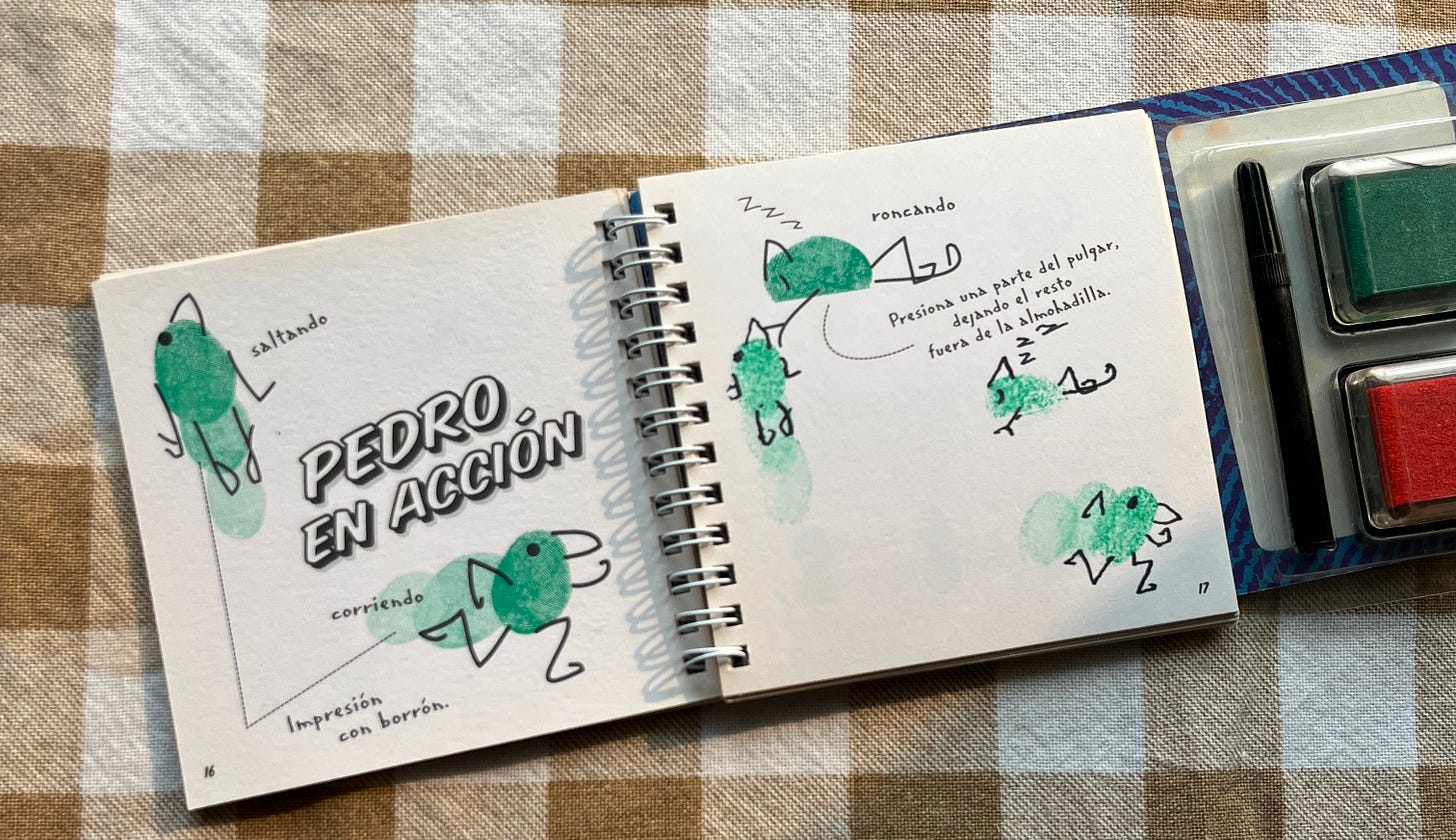 saltando
PEDRO
EN ACCIÓN
corriendo
Impresión
con borrón.
16
z z z z
roncando
Presiona una parte del pulgar,
dejando el resto
fuera de la almohadilla.
z z z
17